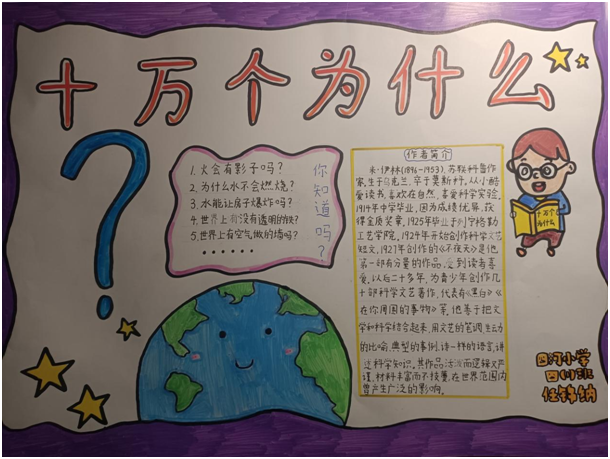 十万个为什么
1. 火会有影子吗?
2. 为什么水不会燃烧?
3. 水能让房子爆炸吗?
4. 世界上有没有透明的铁?
5. 世界上有空气做的墙吗?
······
你知道吗?
作者简介
米·伊林(1896-1953), 苏联科普作
家, 生于乌克兰, 卒于莫斯科, 从小酷
爱读书, 喜欢在自然, 喜爱科学实验,
1914年中学毕业, 因为成绩优异, 获
得金质奖章, 1925年毕业于列宁格勒
工艺学院, 1924年开始创作科学文艺
短文, 1927年创作的《不夜天》是他
第一部有分量的作品, 受到读者喜
爱, 以后二十多年, 为青少年创作几
十部科学文艺著作, 代表有《黑白》《
在你周围的事物》等, 他善于把文
学和科学结合起来, 用文艺的笔调, 生动
的比喻, 典型的事例, 诗一样的语言, 讲
述科学知识, 其作品活泼而逻辑又严
谨, 材料丰富而不枝蔓, 在世界范围内
曾产生广泛的影响。
十万个
为什么
小学
班
任锦纳